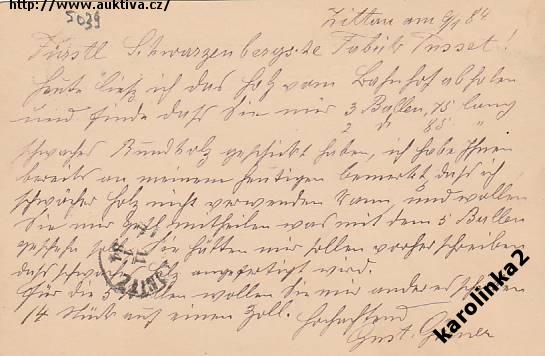 http://www.auktiva.cz/
5039
Zittau am 9/1 84
Fürstl Schwarzenbergsche Fabrik Tusset!
Heute ließ ich das Holz vom Bahnhof abholen
und finde dass Sie mir 3 Ballen, 75 lang
2 " 85 "
schwaches Rundholz geschickt haben, ich habe Ihnen
bereits an meinem heutigen bemerkt dass ich
schwächer Holz nicht verwenden kann, und wollen
Sie mir mittheilen was mit dem 5 Ballen
geschehen soll. Sie hätten mir sollen vorher schreiben
dass schwaches Holz angefertigt wird.
Für die 5 Ballen wollen Sie mir andere schicken
14 Stück auf einen Zoll. Hochachtend
Gust.
karolinka2